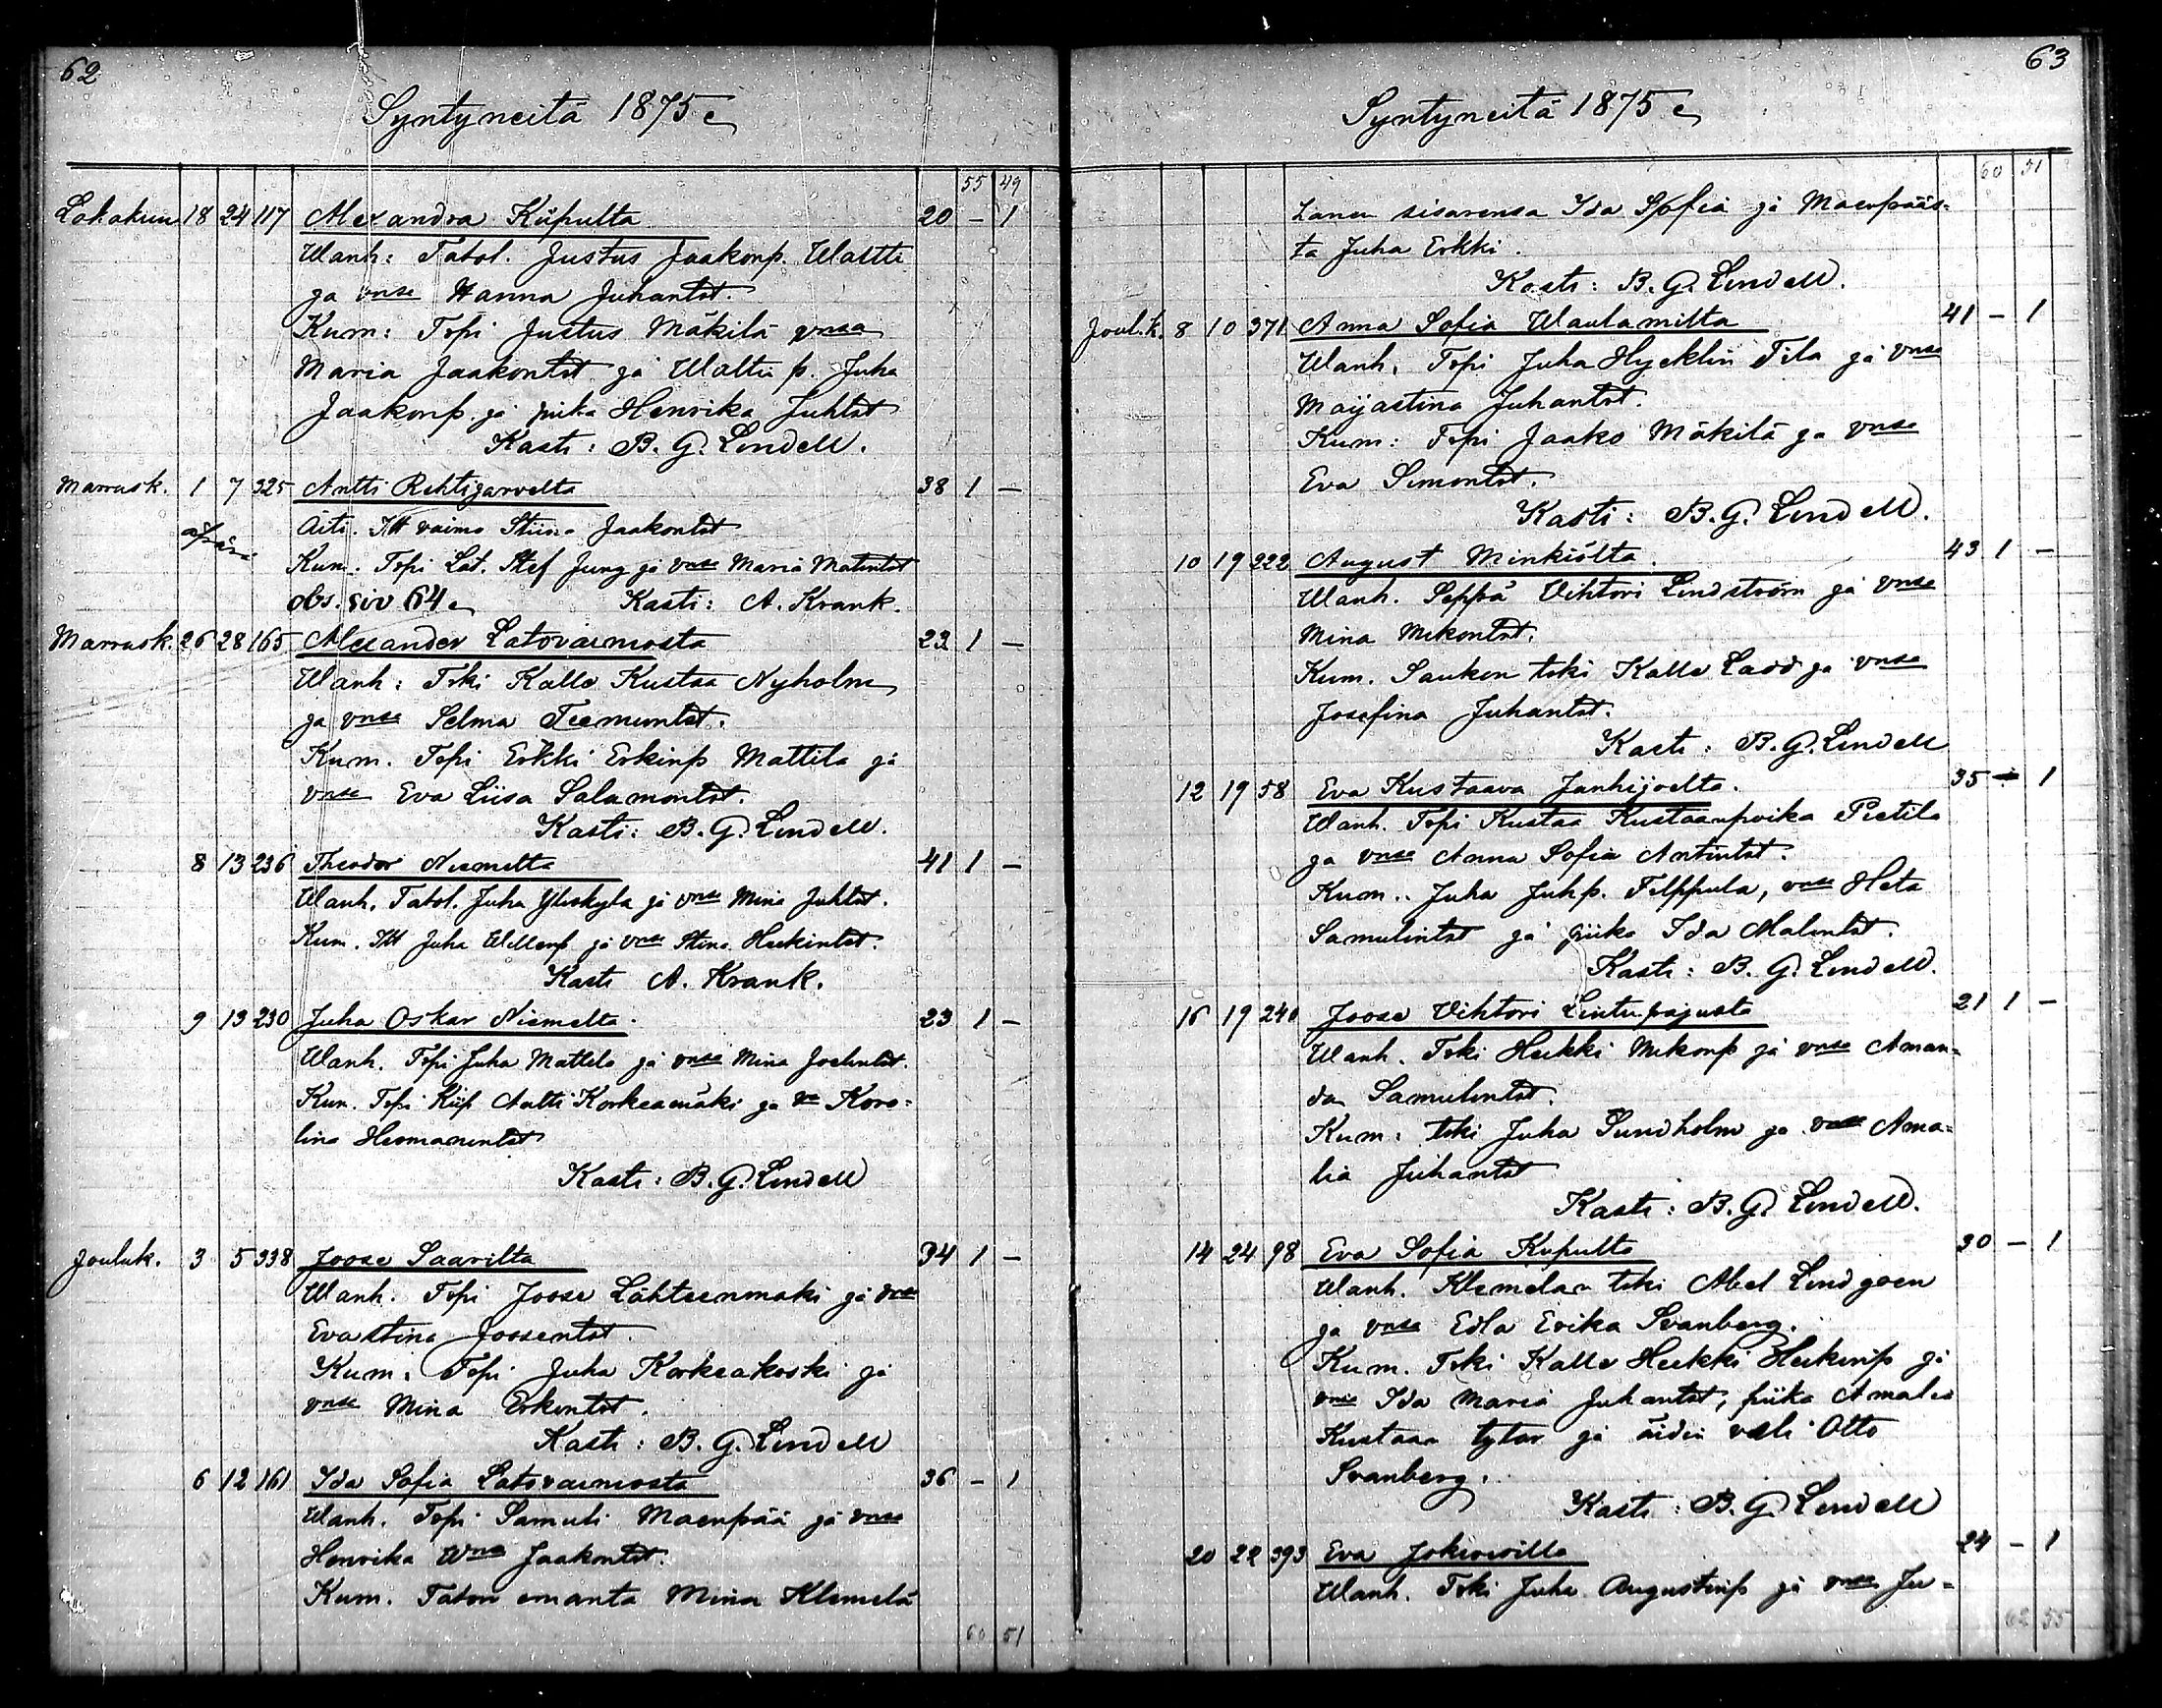 62
Syntyneitä 1875
55 49
Lokakuu 18 24 117 Alexandra Kiipulta 20 – 1
Wanh: Tatol. Justus Jaakonp. Waltti
ja vnsa Hanna Juhantr.
Kum: Topi Justus Mäkilä vnsa
Maria Jaakontr ja Waltti p. Juha
Jaakonp. ja piika Henrika Juhtr
Kasti: B. G. Lindell.
Marrask. 1 7 325 Antti Rehtijärveltä 38 1 –
äpärä Äiti. Itt vaimo Stiina Jaakontr
Kum. Topi Lat. Stef Jung ja vnsa Maria Matintr
obs. siv 64 Kasti: A. Krank.
Marrask. 26 28 165 Alexander Latovainiosta 23 1 –
Wanh: Trki Kalle Kustaa Nyholm
ja vnsa Selma Teemuntr.
Kum. Topi Erkki Erkinp Mattila ja
vnsa Eva Liisa Salamontr.
Kasti: B. G. Lindell.
8 13 236 Theodor Niemeltä 41 1 –
Wanh. Tatol. Juha Yliskylä ja vnsa Mina Juhtr.
Kum. Itt Juha Willenp ja vnsa Stina Heikintr.
Kasti A. Krank.
9 13 230 Juha Oskar Niemeltä 23 1 –
Wanh. Topi Juha Mattila ja vnsa Mina Joelintr.
Kum. Topi Kiip Antti Korkeamäki ja va Karo=
lina Hermanintr
Kasti: B. G. Lindell
Jouluk. 3 5 338 Joose Saarilta 34 1 –
Wanh. Topi Joose Lähteenmäki ja vnsa
Evastina Joosentr.
Kum. Topi Juha Korkeakoski ja
vnsa Mina Erkintr.
Kasti: B. G. Lindell
6 12 161 Ida Sofia Latovainiosta 36 – 1
Wanh. Topi Samuli Maenpää ja vnsa
Henrika Jaakontr.
Kum. Talon emäntä Mina Klemelä
60 51
63
Syntyneitä 1875
60 51
sisarensa Ida Sofia ja Maenpääs=
tä Juha Erkki.
Kasti: B. G. Lindell.
Joul.k. 8 10 371 Anna Sofia Waulamilta 41 – 1
Wanh. Topi Juha Hyeklin Tila ja vnsa
Maijastina Juhantr.
Kum: Topi Jaako Mäkilä ja vnsa
Eva Simontr.
Kasti: B. G. Lindell.
10 19 222 August Minkiöltä. 43 1 –
Wanh. Seppä Vihtori Lindström ja vnsa
Mina Mikontr.
Kum. Sauken trki Kalle Ladd ja vnsa
Josefina Juhantr.
Kasti: B. G. Lindell
12 19 58 Eva Kustaava Janhijoelta. 35 – 1
Wanh. Topi Kustaa Kustaanpoika Pietila
ja vnsa Anna Sofia Antintr.
Kum. Juha Juhp. Filppula, vnsa Heta
Samulintr ja piika Ida Malintr.
Kasti: B. G. Lindell.
16 19 240 Joose Vihtori Lintupajusta 21 1 –
Wanh. Trki Heikki Mikonp ja vnsa Aman=
da Samulintr.
Kum: trki Juha Sundholm ja vnsa Ama=
lia Juhantr
Kasti: B. G. Lindell.
14 24 98 Eva Sofia Kiipulta 30 – 1
Wanh. Klemelan trki Abel Lindgren
ja vnsa Edla Erika Svanberg.
Kum. Trki Kalle Heikki Heikinp ja
vnsa Ida Maria Juhantr, piika Amalia
Kustaan tytär ja äidin veli Otto
Svanberg.
Kasti: B. G. Lindell
20 22 393 Eva Jokioisilla 24 – 1
Wanh. Trki Juha Augustinp ja vnsa Ju=
62 55